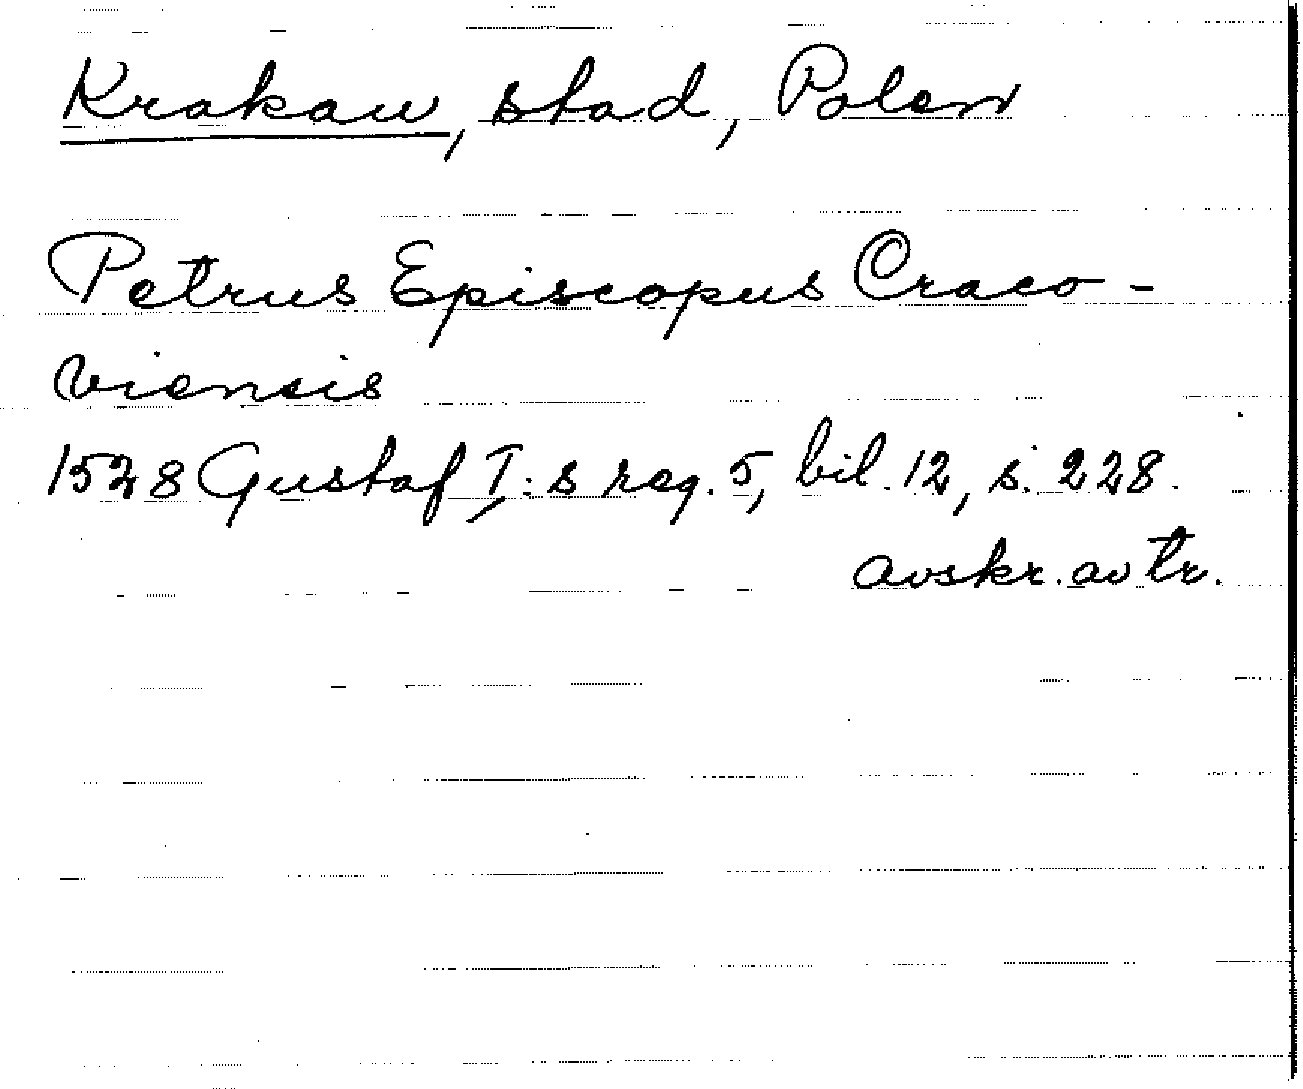 Krakau, stad, Polen
Petrus Episcopus Craco-
viensis
1528 Gustaf I:s reg. 5, bil. 12, s. 228.
avskr. av tr.